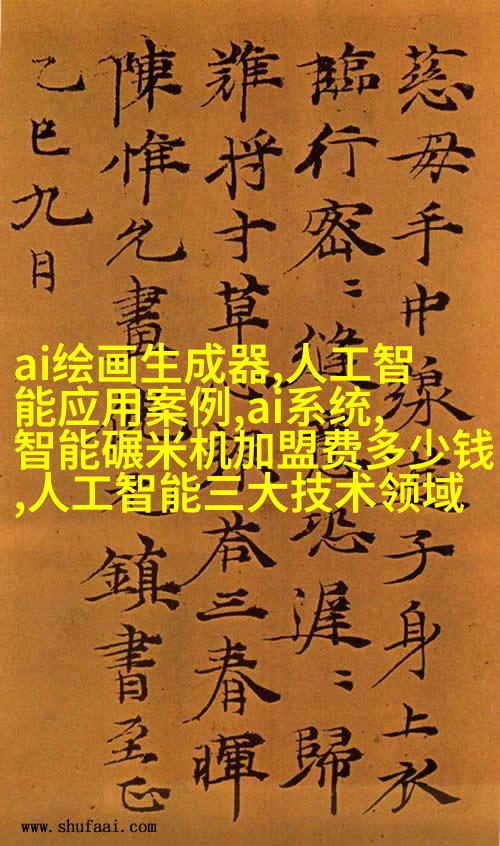 慈母手中線子身上衣
臨行密〻縫恐遲〻歸
難将寸草答三春暉
陳惟允畫鎮書至正
乙巳九月
ai绘画生成器,人工智
能应用案例,ai系统,
智能碾米机加盟费多少钱
,人工智能三大技术领域
www.shufaai.com